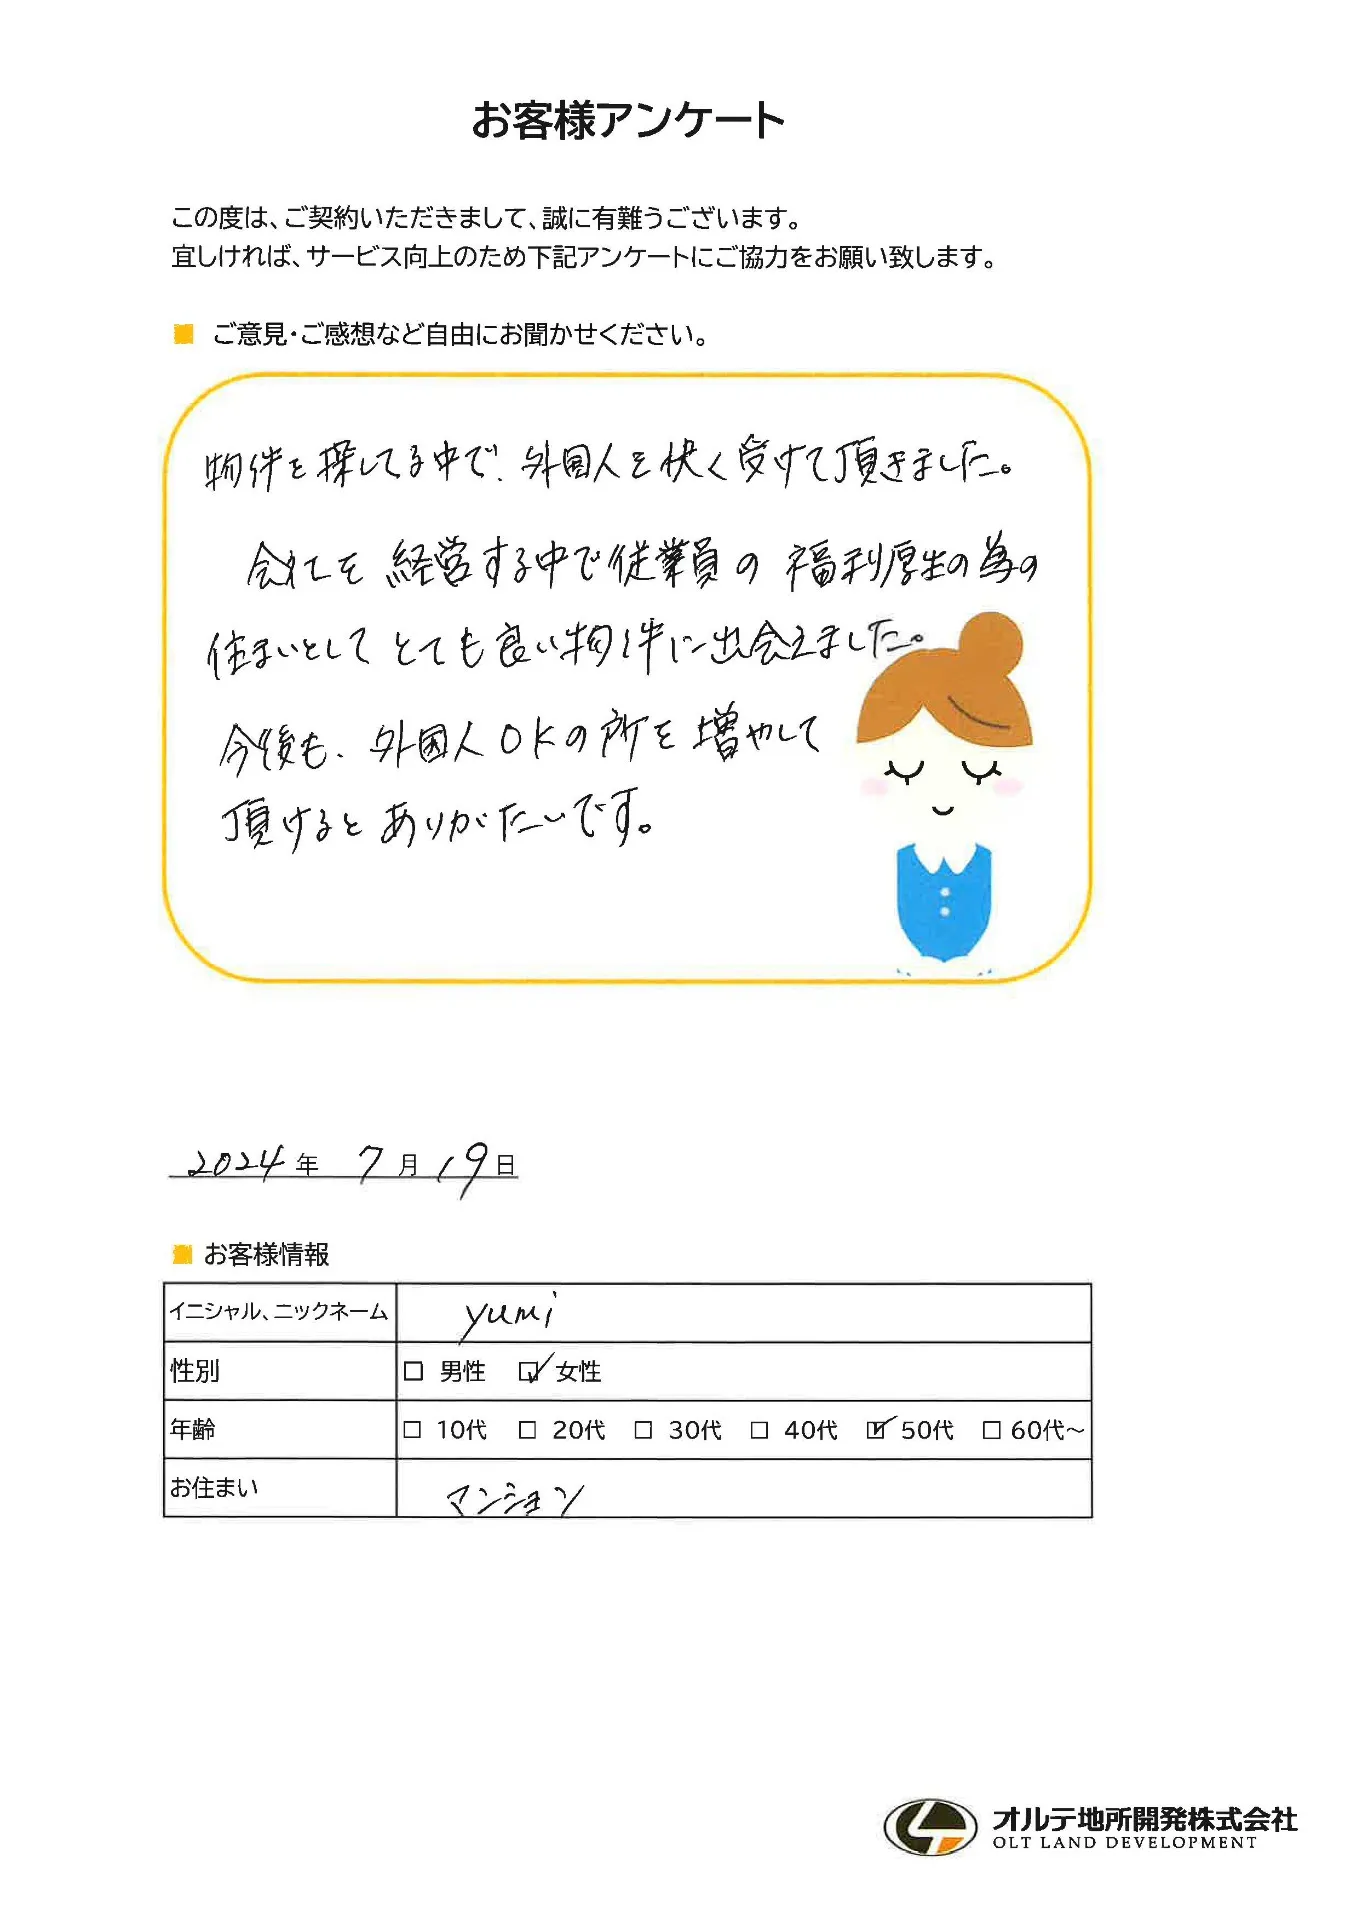 お客様アンケート
この度は、ご契約いただきまして、誠に有難うございます。
宜しければ、サービス向上のため下記アンケートにご協力をお願い致します。
■ ご意見・ご感想など自由にお聞かせください。
物件を探してる中で、外国人を快く受けて頂きました。
を経営する中で従業員の福利厚生の為の
住まいとしてとても良い物件に出会えました。
今後も、外国人OKの所を増やして
頂けるとありがたいです。
2024年 7月 19日
■ お客様情報
イニシャル、ニックネーム yumi
性別 □ 男性 ☑ 女性
年齢 □ 10代 □ 20代 □ 30代 □ 40代 ☑ 50代 □ 60代～
お住まい マンション
オルテ地所開発株式会社
OLT LAND DEVELOPMENT